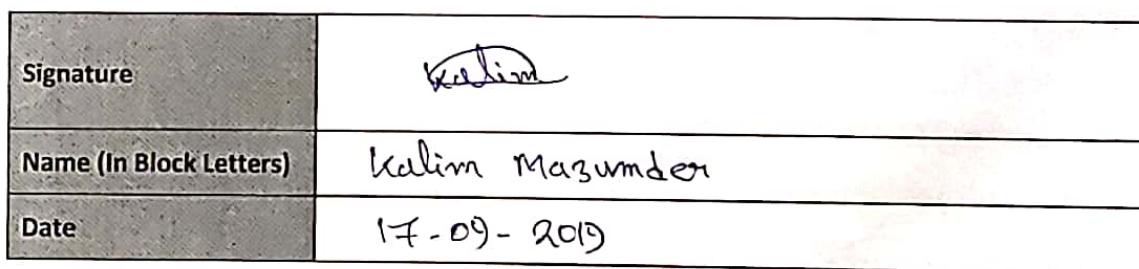 Signature Kalim
Name (In Block Letters) Kalim Mazumder
Date 17-09-2019